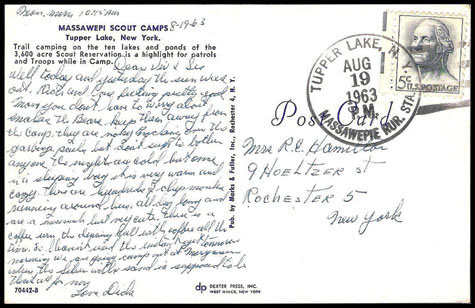 Dear Mom 10:45 AM
8-19-63
MASSAWEPI SCOUT CAMPS
Tupper Lake, New York.
Trail camping on the ten lakes and ponds of the
3,600 acre Scout Reservation is a highlight for patrols
and Troops while in Camp.
Dear Vi & Geo
Well today and yesterday the sun was
out. Rich and Cory feeling pretty good
Mary you don't have to worry about
the Bears keep them away from
the Camp. they are over the
garbage pails, but don't to bother
anyone. the nights are cold but
in sleeping bag it is very warm and
cozy. There are hundreds of chipmonks
running around here, all day long and
are a and very cute. There is a
coffee urn the dining hall with coffee all the
time. So haven't used the instant yet. tomorrow
morning we are going camp out at
where the silver with sand is supposed to be
for now
Love Dick
70442-B
Pub. by Manks & Fuller, Inc., Rochester 4, N. Y.
dp DEXTER PRESS, INC.
WEST NYACK, NEW YORK
TUPPER LAKE, N.Y.
AUG
19
1963
M
MASSAWEPIE RUR. STA.
5¢ U.S. POSTAGE
Post Card
Mrs R.C. Hamilton
9 Hoeltzer St
Rochester 5
New York